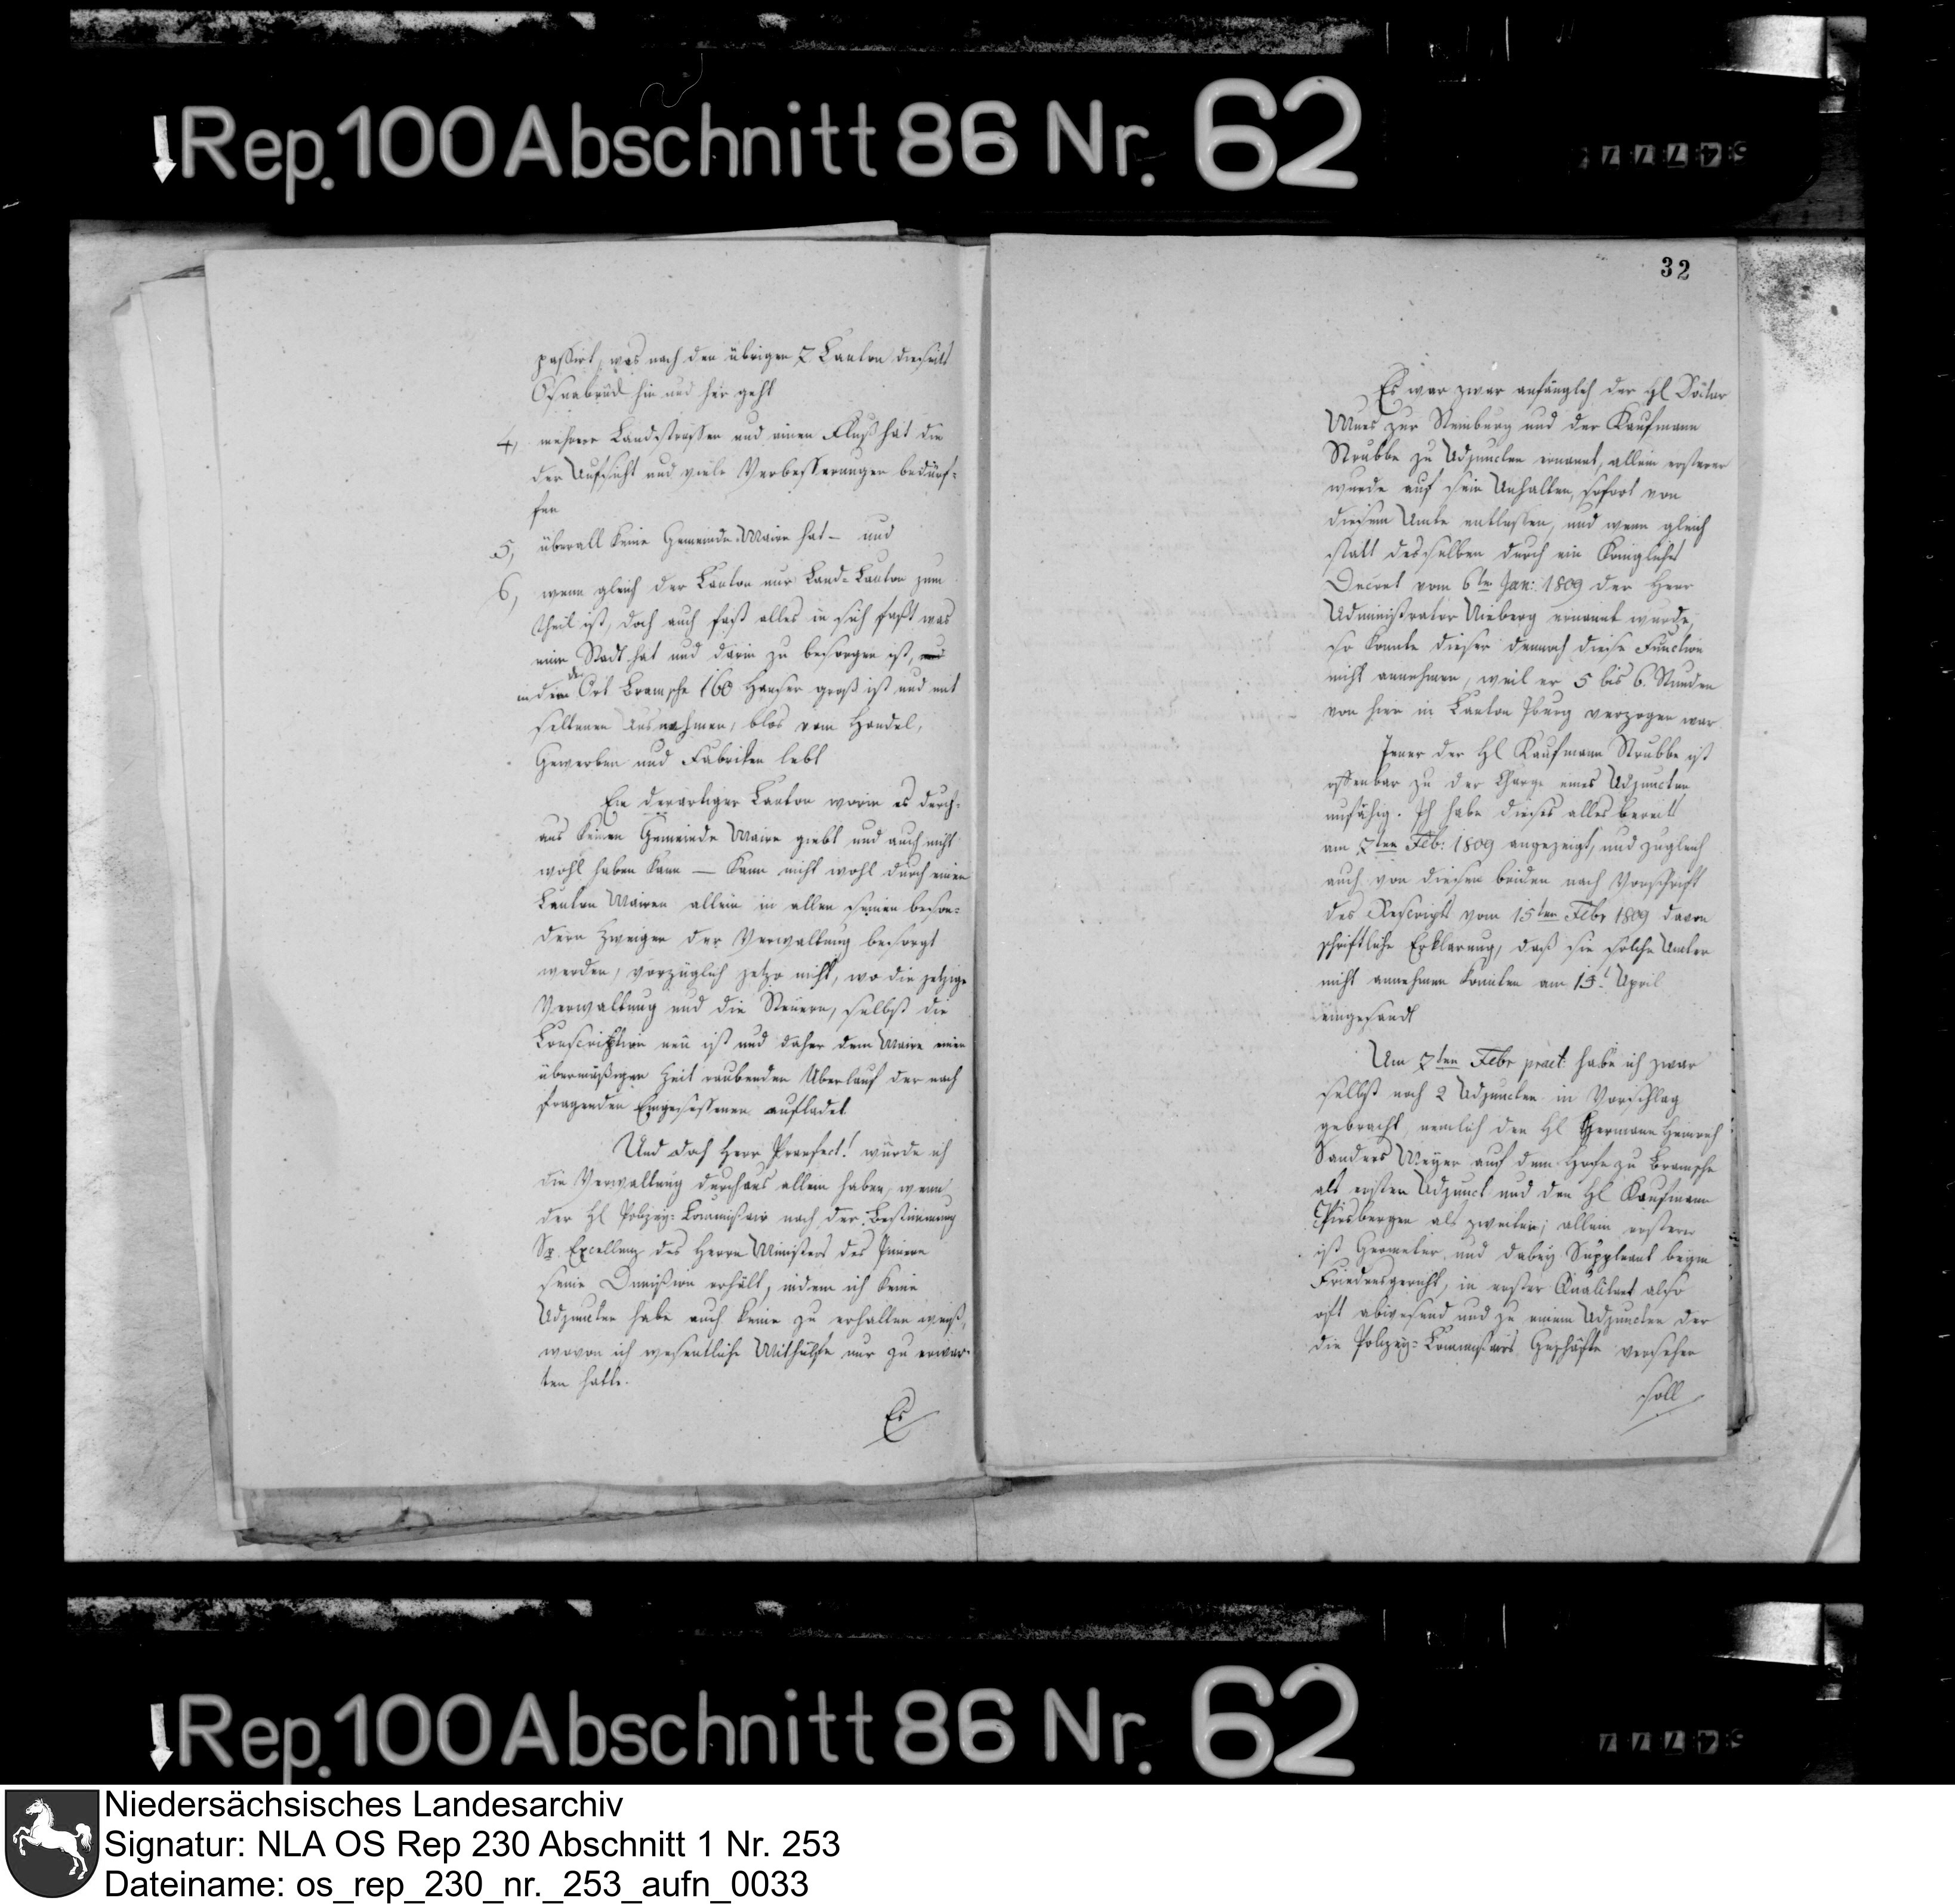 Rep. 100 Abschnitt 86 Nr. 62
passirt, was nach den übrigen 7 Canton dieseits
Osnabrück hin und her geht
4, mehrere Landstrassen und einen Fluß hat die
der Aufsicht und viele Verbesserungen bedürf-
fen
5, überall keine Gemeinde Maire hat – und
6, wenn gleich der Canton nur Land-Canton zum
theil ist, doch auch fast alles in sich faßt was
eine Stadt hat und darin zu besorgen ist,
indem der Ort Bramsche 160 Hauser groß ist und mit
seltenen Ausnahmen, blos vom Handel,
Gewerben und Fabriken lebt
Ein derartiger Canton worin es durch-
aus keinen Gemeinde Maire giebt und auch nicht
wohl haben kann — kann nicht wohl durch einen
Canton Mairen allein in allen seinen beson-
dern Zweigen der Verwaltung besorgt
werden, vorzüglich jetzo nicht, wo die jetzige
Verwaltung und die Steuern, selbst die
Conscription neu ist und daher dem Maire einen
übermäßigen Zeit raubenden Überlauf der nach
fragenden Eingesessenen aufladet
Und doch Herr Praefect! würde ich
die Verwaltung durchaus allein haben, wenn
der Hl Polizey-Commißair nach der Bestimmung
Sr Excellenz des Herrn Ministers des Innern
seine Dimißion erhält, indem ich keine
Adjuncten habe auch keine zu erhalten weiß,
wovon ich wesentliche Mithülfe nur zu erwar-
ten hätte.
Es
32
Es war zwar anfänglich der Hl Doctor
zur Steinburg und der Kaufmann
Strubbe zu Adjuncten ernannt, allein ersterer
wurde auf sein Anhalten, sofort von
diesem Amte entlassen, und wenn gleich
statt desselben durch ein Königliches
Decret vom 6ten Jan: 1809 der Herr
Administrator Nieberg ernannt wurde,
so konnte dieser dennoch diese Function
nicht annehmen, weil er 5 bis 6 Stunden
von hier in Canton Iburg verzogen war
Jener der Hl Kaufmann Strubbe ist
offenbar zu der Charge eines Adjuncten
unfähig. Ich habe dieses alles bereits
am 7ten Feb: 1809 angezeigt, und zugleich
auch von diesen beiden nach Vorschrift
des Rescripts vom 15ten Febr 1809 davon
schriftliche Erklarung, daß sie solche Amter
nicht annehmen konnten am 13t April
eingesandt
Am 7ten Febr praet: habe ich zwar
selbst noch 2 Adjuncten in Vorschlag
gebracht nemlich den Hl Hermann Heinrich
Sanders Meyer auf dem Hofe zu Bramsche
als ersten Adjunct und den Hl Kaufmann
Piesbergen als zweiten; allein ersterer
ist Geometer und dabey Suppleant beym
Friedensgericht, in erster Qualitaet also
oft abwesend und zu einem Adjuncten der
die Polizey-Commissairs Geschäfte versehen
soll
Rep. 100 Abschnitt 86 Nr. 62
Niedersächsisches Landesarchiv
Signatur: NLA OS Rep 230 Abschnitt 1 Nr. 253
Dateiname: os_rep_230_nr._253_aufn_0033